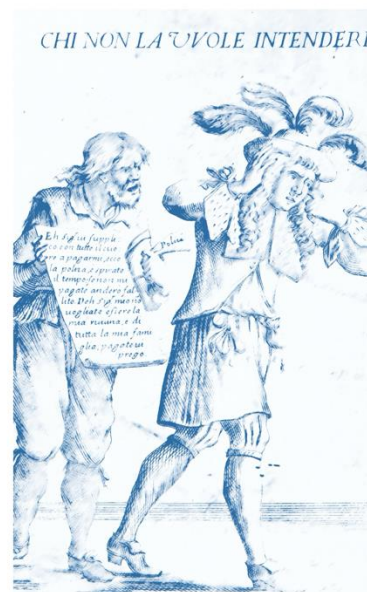 CHI NON LA VVOLE INTENDER
Eh Sigr ui suppli
co con tutto il cuo
re a pagarmi, ecco
la poliza, e spirato
il tempo se non mi
pagate andero fal
lito Deh Sigr mio nō
uogliate essere la
mia ruuina, e di
tutta la mia fami
glia, pagate ui
prego
Poliza